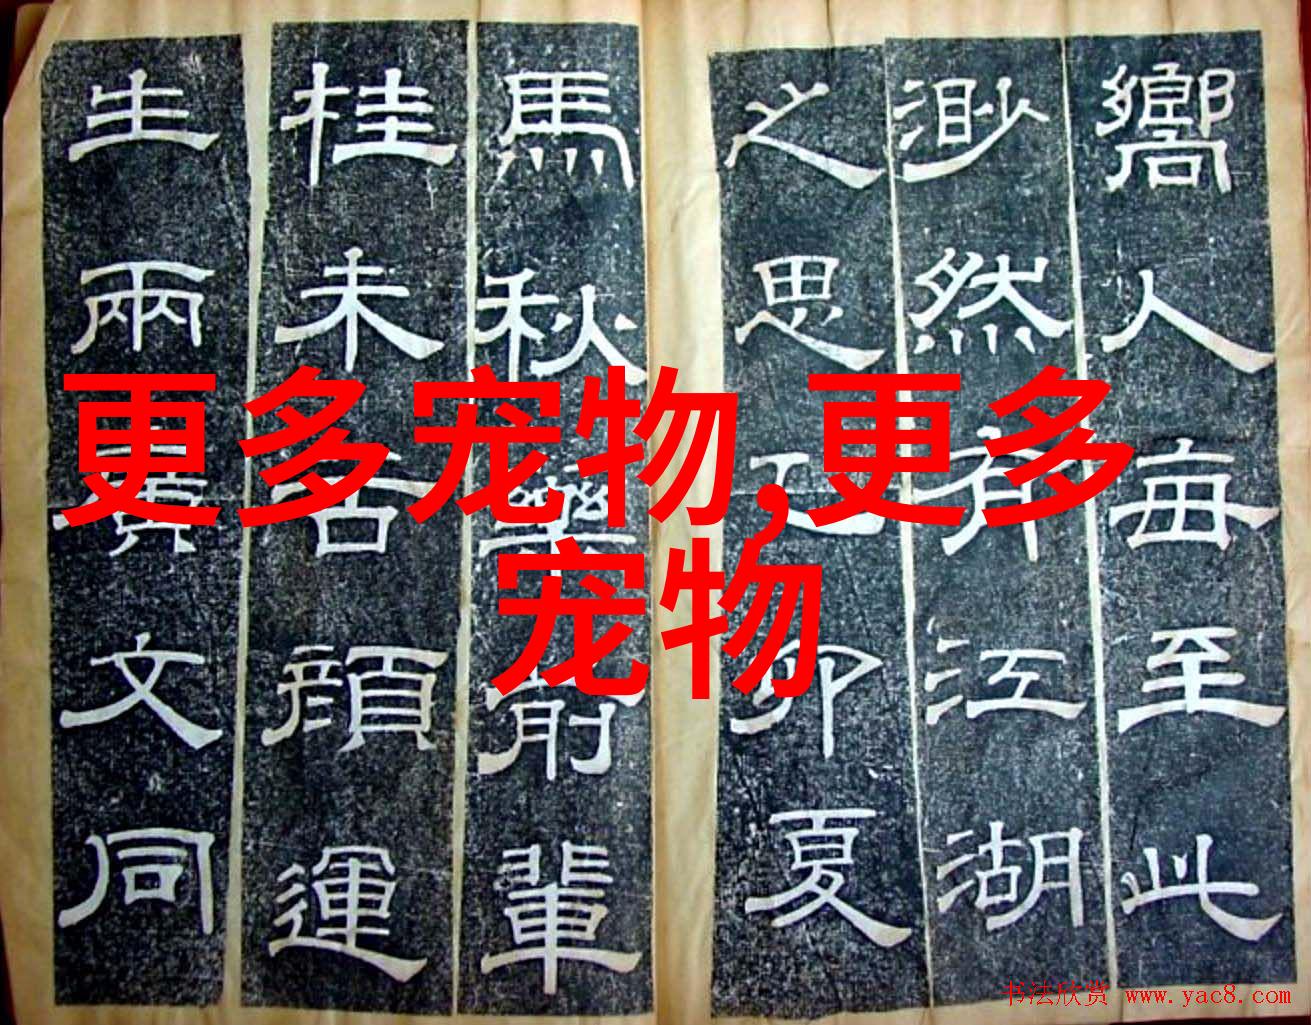 嚮人每至此
渺然有江湖
之思乙卯夏
馬秋藥前輩
桂未谷顏運
生兩廣文同
更多宠物,更多
宠物
书法欣赏 www.yac8.com